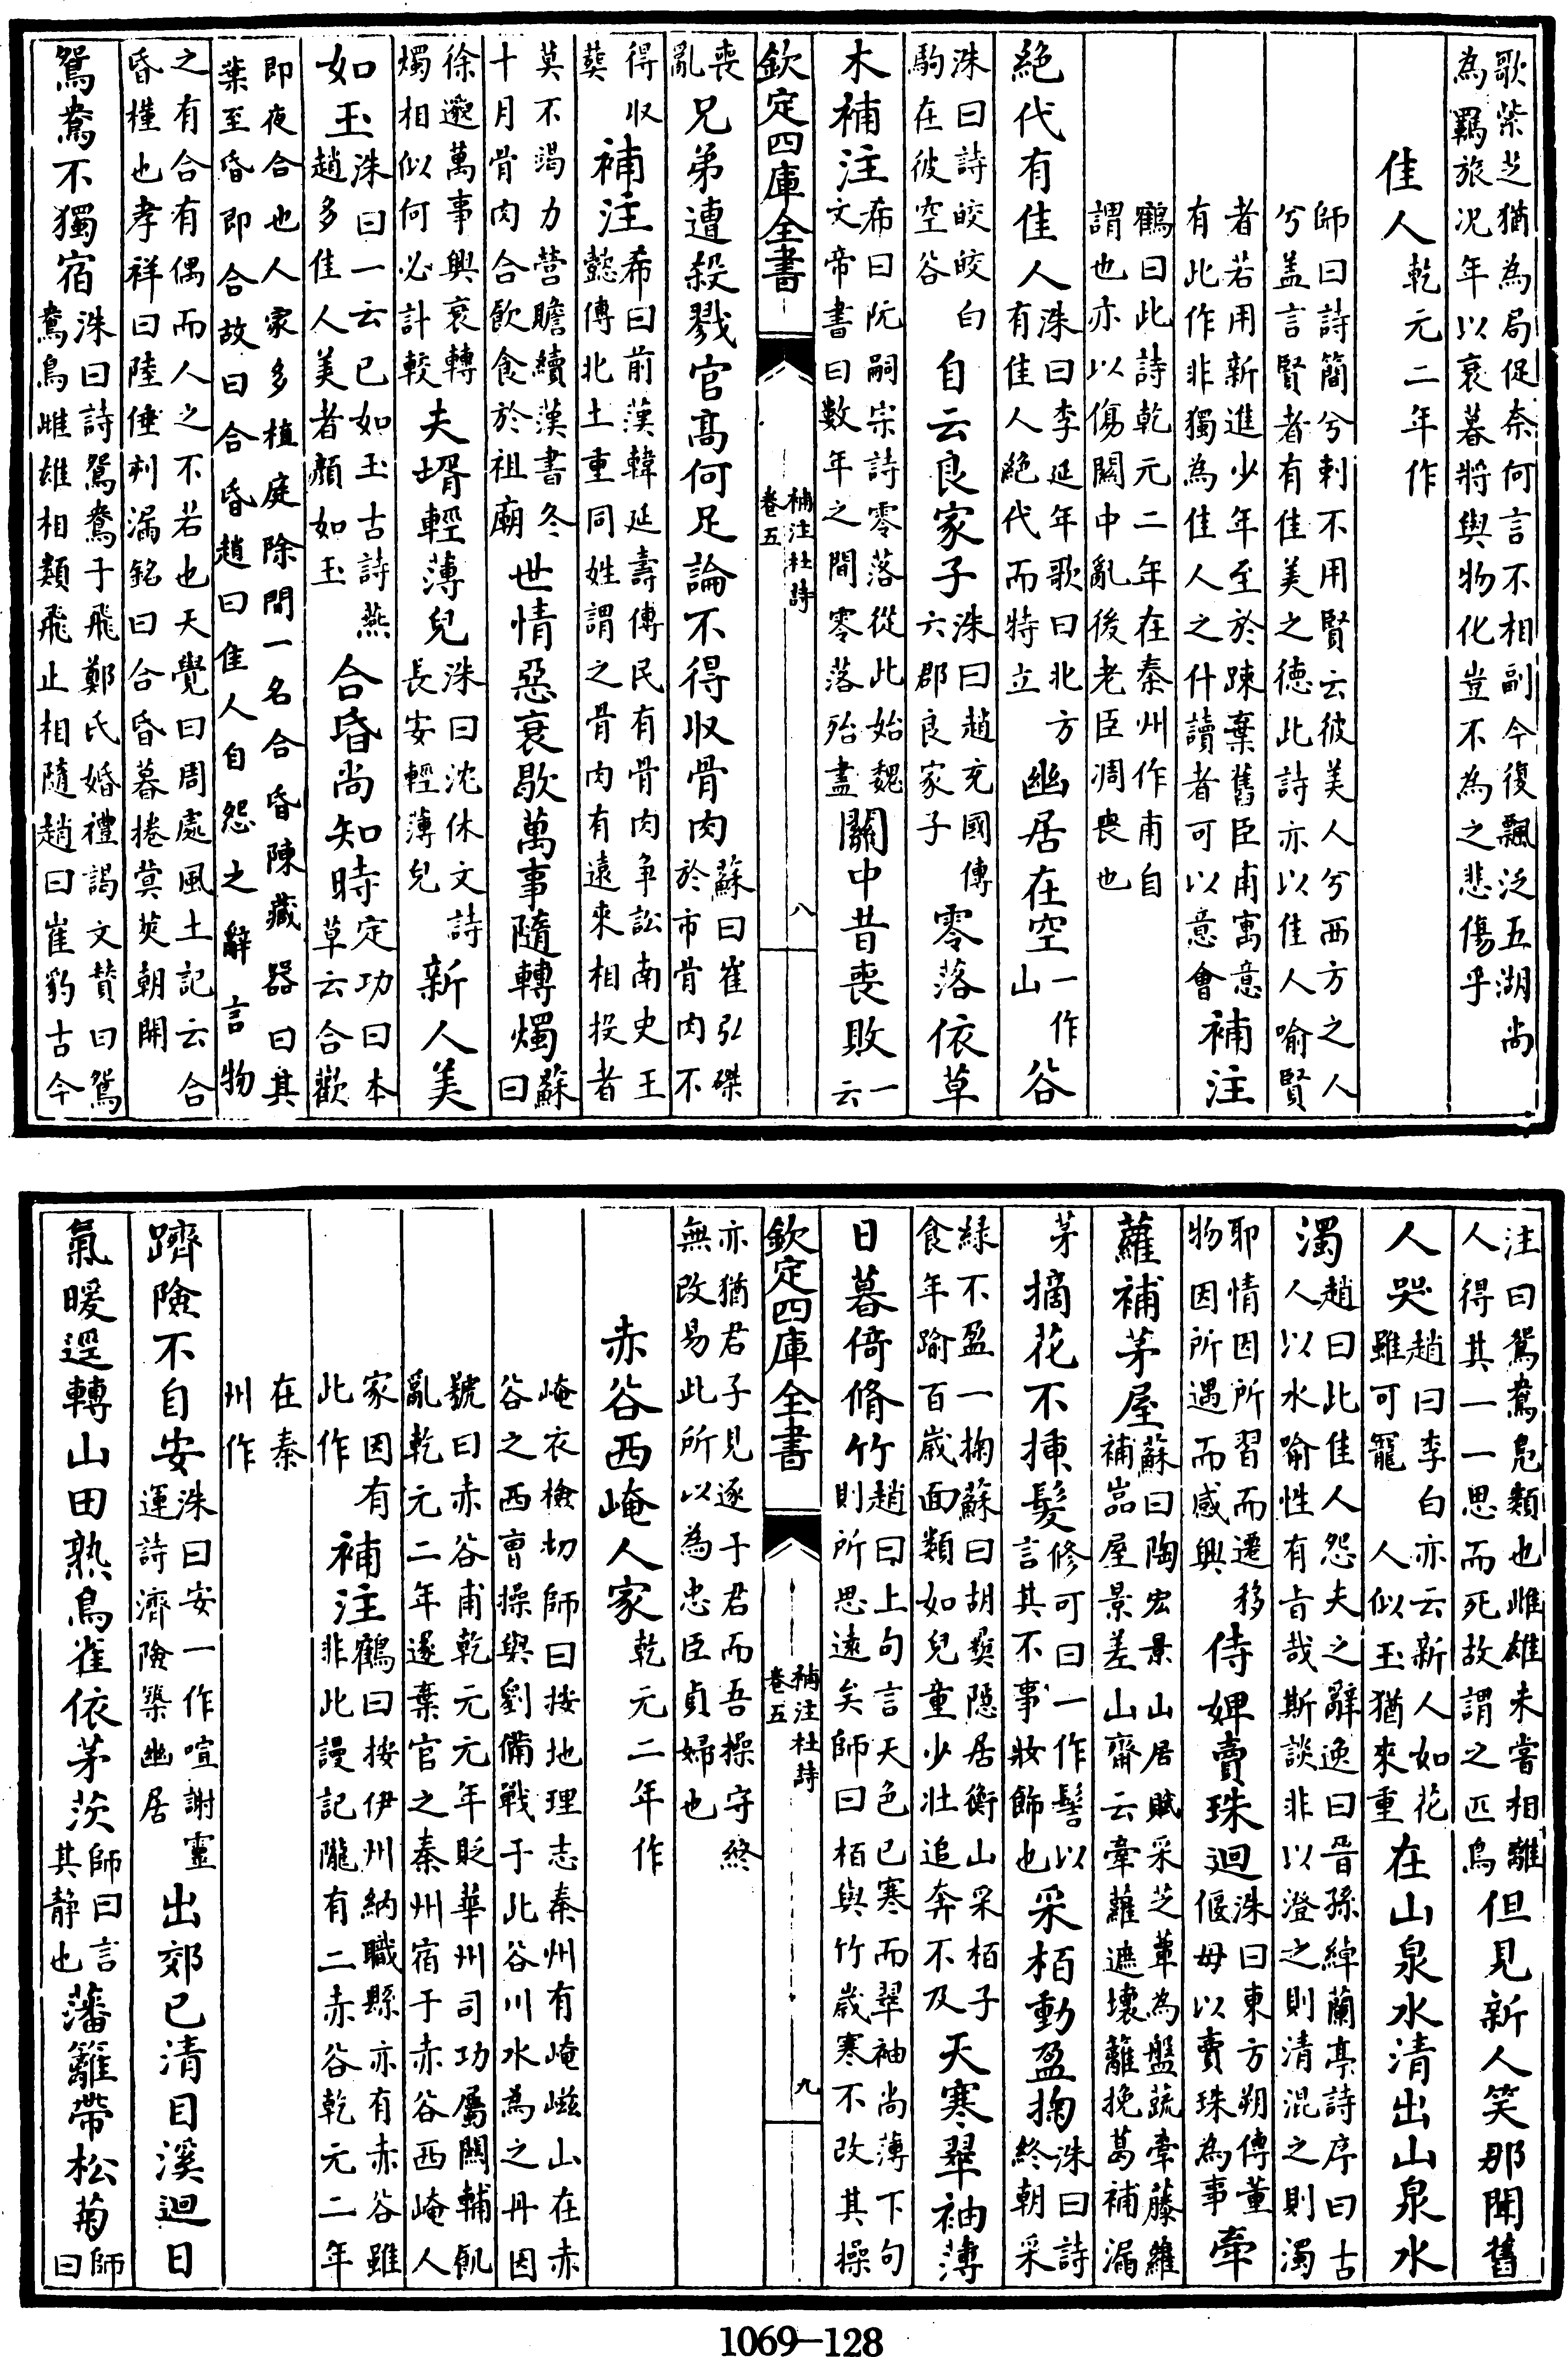 歌紫芝猶為局促奈何言不相副今復飄泛五湖尚
為羈旅况年以衰暮將與物化豈不為之悲傷乎
佳人乾元二年作
師曰詩簡兮刺不用賢云彼美人兮西方之人
兮盖言賢者有佳美之德此詩亦以佳人喻賢
者若用新進少年至於踈棄舊臣甫寓意
有此作非獨為佳人之什讀者可以意會補注
鶴曰此詩乾元二年在秦州作甫自
謂也亦以傷關中亂後老臣凋喪也
絶代有佳人洙曰李延年歌曰北方有佳人絶代而特立幽居在空一作山谷
洙曰詩皎皎白駒在彼空谷自云良家子洙曰趙充國傳六郡良家子零落依草
木補注希曰阮嗣宗詩零落從此始魏文帝書曰數年之間零落殆盡關中昔喪敗一云
欽定四庫全書 補注杜詩卷五 八
喪亂兄弟遭殺戮官髙何足論不得収骨肉蘇曰崔弘磔於市骨肉不
得収葬補注希曰前漢韓延壽傳民有骨肉争訟南史王懿傳北土重同姓謂之骨肉有遠來相投者
莫不竭力營贍續漢書冬十月骨肉合飲食於祖廟世情惡衰歇萬事隨轉燭蘇曰
徐邈萬事興衰轉燭相似何必計較夫壻輕薄兒洙曰沈休文詩長安輕薄兒新人美
如玉洙曰一云已如玉古詩燕趙多佳人美者顔如玉合昏尚知時定功曰本草云合歡
即夜合也人家多植庭除間一名合昏陳藏器曰其
葉至昏即合故曰合昏趙曰佳人自怨之辭言物
之有合有偶而人之不若也天覺曰周處風土記云合
昏槿也孝祥曰陸倕刺漏銘曰合昏暮捲蓂莢朝開
鴛鴦不獨宿洙曰詩鴛鴦于飛鄭氏婚禮謁文贊曰鴛鴦鳥雌雄相類飛止相隨趙曰崔豹古今
注曰鴛鴦鳬類也雌雄未嘗相離人得其一一思而死故謂之匹鳥但見新人笑那聞舊
人哭趙曰李白亦云新人如花雖可寵人似玉猶來重在山泉水清出山泉水
濁趙曰此佳人怨夫之辭逸曰晉孫綽蘭亭詩序曰古人以水喻性有旨哉斯談非以澄之則清混之則濁
耶情因所習而遷移物因所遇而感興侍婢賣珠迴洙曰東方朔傳董偃母以賣珠為事牽
蘿補茅屋蘇曰陶宏景山居賦采芝葦為盤蔬牽藤蘿補嵓屋景差山齋云牽蘿遮壞籬挽葛補漏
茅摘花不揷髮修可曰一作髻以言其不事妝飾也采栢動盈掬洙曰詩終朝采
緑不盈一掬蘇曰胡奠隱居衡山采栢子食年踰百嵗面類如兒童少壯追奔不及天寒翠袖薄
日暮倚脩竹趙曰上句言天色已寒而翠袖尚薄下句則所思遠矣師曰栢與竹嵗寒不改其操
欽定四庫全書 補注杜詩卷五 九
亦猶君子見逐于君而吾操守終
無改易此所以為忠臣貞婦也
赤谷西崦人家乾元二年作
崦衣檢切師曰按地理志秦州有崦嵫山在赤
谷之西曹操與劉備戰于此谷川水為之丹因
號曰赤谷甫乾元元年貶華州司功屬關輔飢
亂乾元二年遂棄官之秦州宿于赤谷西崦人
家因有此作補注鶴曰按伊州納職縣亦有赤谷雖非此謾記隴有二赤谷乾元二年
在秦州作
躋險不自安洙曰安一作喧謝靈運詩濟險築幽居出郊已清目溪迴日
氣暖逕轉山田熟鳥雀依茅茨師曰言其靜也藩籬帶松菊師曰
1069—128